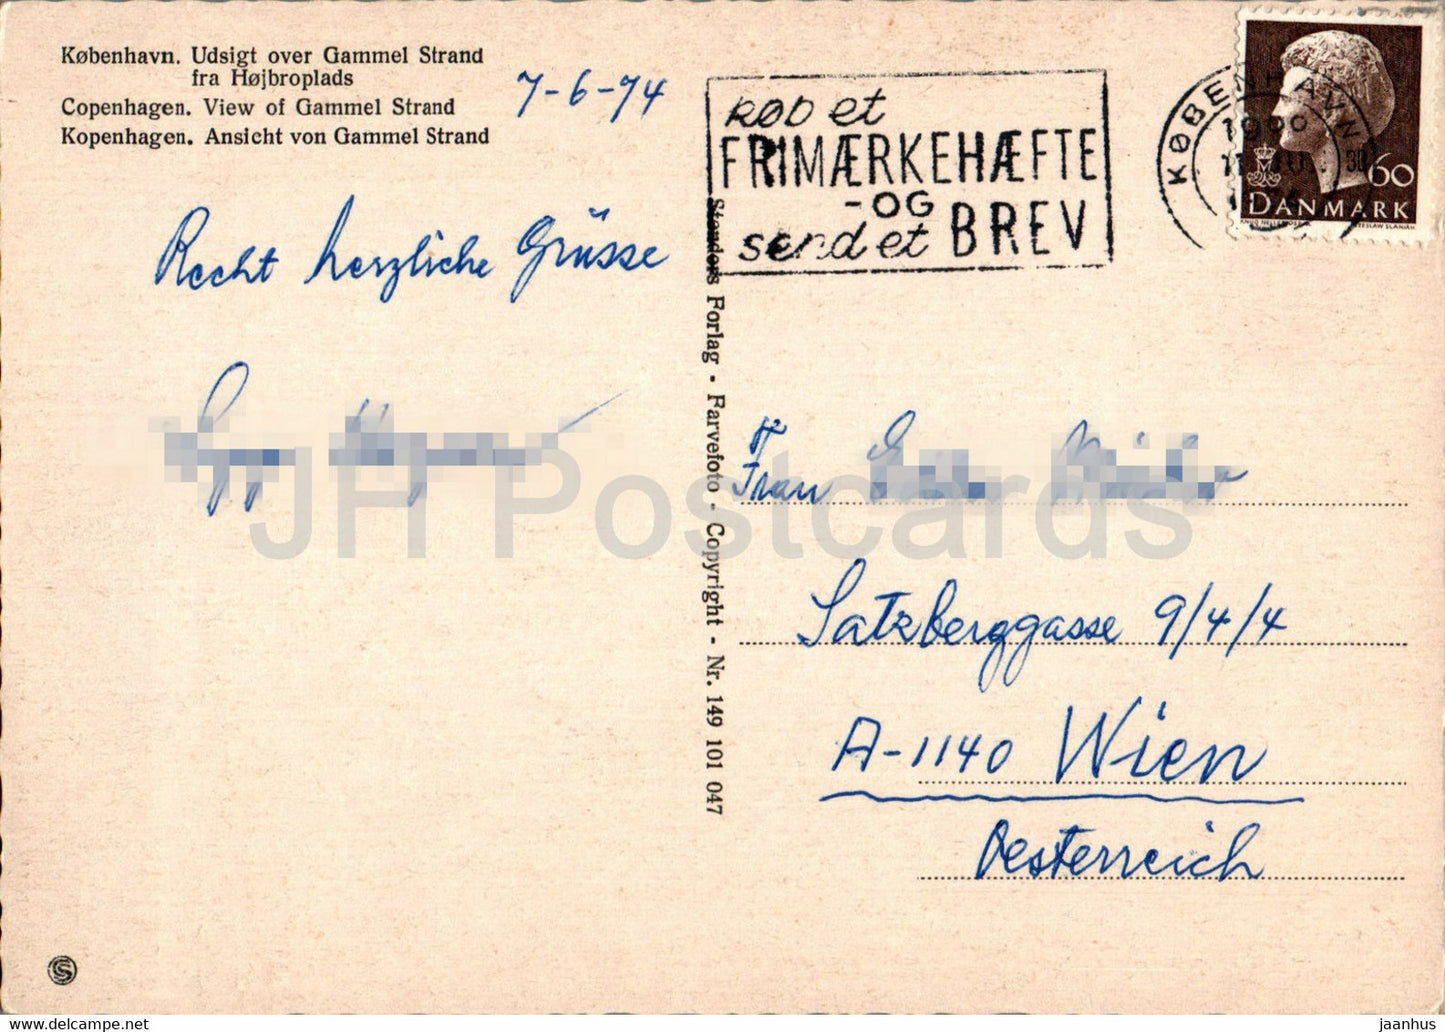 København. Udsigt over Gammel Strand
fra Højbroplads
Copenhagen. View of Gammel Strand
Kopenhagen. Ansicht von Gammel Strand
7-6-74
Recht herzliche Grüsse
KØB et
FRIMÆRKEHÆFTE
-OG
send et BREV
KØBENHAVN
60
DANMARK
Stenders Forlag - Farvefoto - Copyright - Nr. 149 101 047
Frau
Satzberggasse 9/4/4
A-1140 Wien
Oesterreich
S
JH Postcards
jaanhus